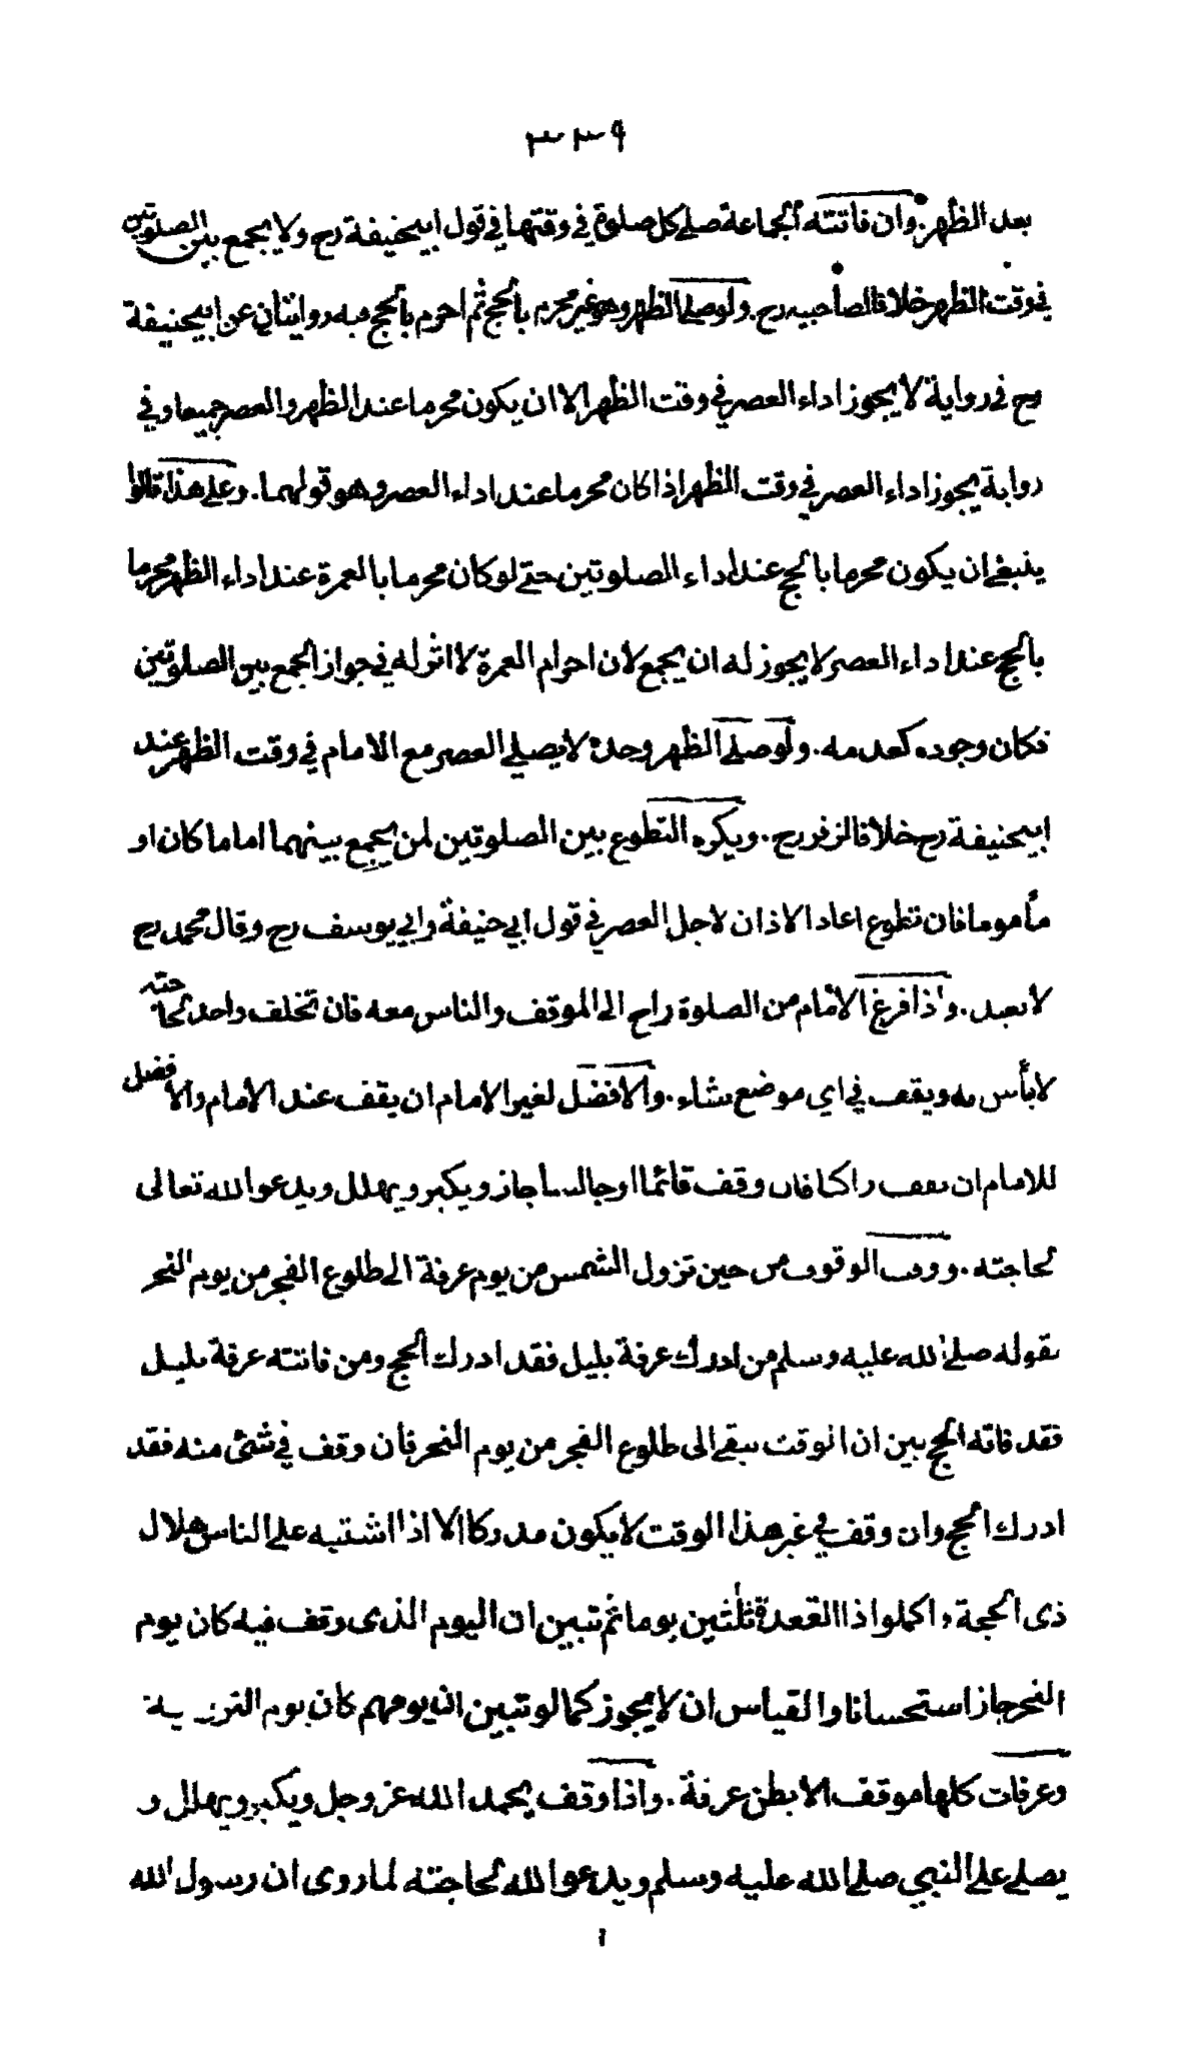 ٣٣٩
بعد الظهر. وان فاتته الجماعة صلے كل صلوة في وقتها في قول ابيحنيفة رح ولا يجمع بين الصلوتين
في وقت الظهر خلافا لصاحبيه رح. ولو صلے الظهر وهو غير محرم بالحج ثم احرم بالحج فيه روايتان عن ابيحنيفة
رح في رواية لا يجوز اداء العصر في وقت الظهر الا ان يكون محرما عند الظهر والعصر جميعا وفي
رواية يجوز اداء العصر في وقت الظهر اذا كان محرما عند اداء العصر وهو قولهما. وعلے هذا قالوا
ينبغے ان يكون محرما بالحج عند اداء الصلوتين حتے لو كان محرما بالعمرة عند اداء الظهر محرما
بالحج عند اداء العصر لا يجوز له ان يجمع لان احرام العمرة لا اثر له في جواز الجمع بين الصلوتين
فكان وجوده كعدمه. ولو صلے الظهر وحدہ لا يصلے العصر مع الامام في وقت الظهر عند
ابيحنيفة رح خلافا لزفر رح. ويكره التطوع بين الصلوتين لمن يجمع بينهما اماما كان او
مأموما فان تطوع اعاد الاذان لاجل العصر في قول ابي حنيفة وابي يوسف رح وقال محمد رح
لا يعيد. واذا فرغ الامام من الصلوة راح الى الموقف والناس معه فان تخلف واحد لحاجته
لا بأس به ويقف في اي موضع شاء. والافضل لغير الامام ان يقف عند الامام والافضل
للامام ان يقف راكبا فان وقف قائما او جالسا جاز ويكبر ويهلل ويدعو الله تعالى
لحاجته. ووقت الوقوف من حين تزول الشمس من يوم عرفة الى طلوع الفجر من يوم النحر
لقوله صلے الله عليه وسلم من ادرك عرفة بليل فقد ادرك الحج ومن فاتته عرفة بليل
فقد فاته الحج بين ان الوقت يبقے الى طلوع الفجر من يوم النحر فان وقف في شئ منه فقد
ادرك الحج وان وقف في غير هذا الوقت لا يكون مدركا الا اذا اشتبه علے الناس هلال
ذى الحجة واكملوا ذا القعدة ثلثين يوما ثم تبين ان اليوم الذى وقف فيه كان يوم
النحر جاز استحسانا والقياس ان لا يجوز كما لو تبين ان يومهم كان يوم التروية
وعرفات كلها موقف الا بطن عرفة. واذا وقف يحمد الله عز وجل ويكبر ويهلل و
يصلے علے النبي صلے الله عليه وسلم ويدعو الله لحاجته لما روى ان رسول الله